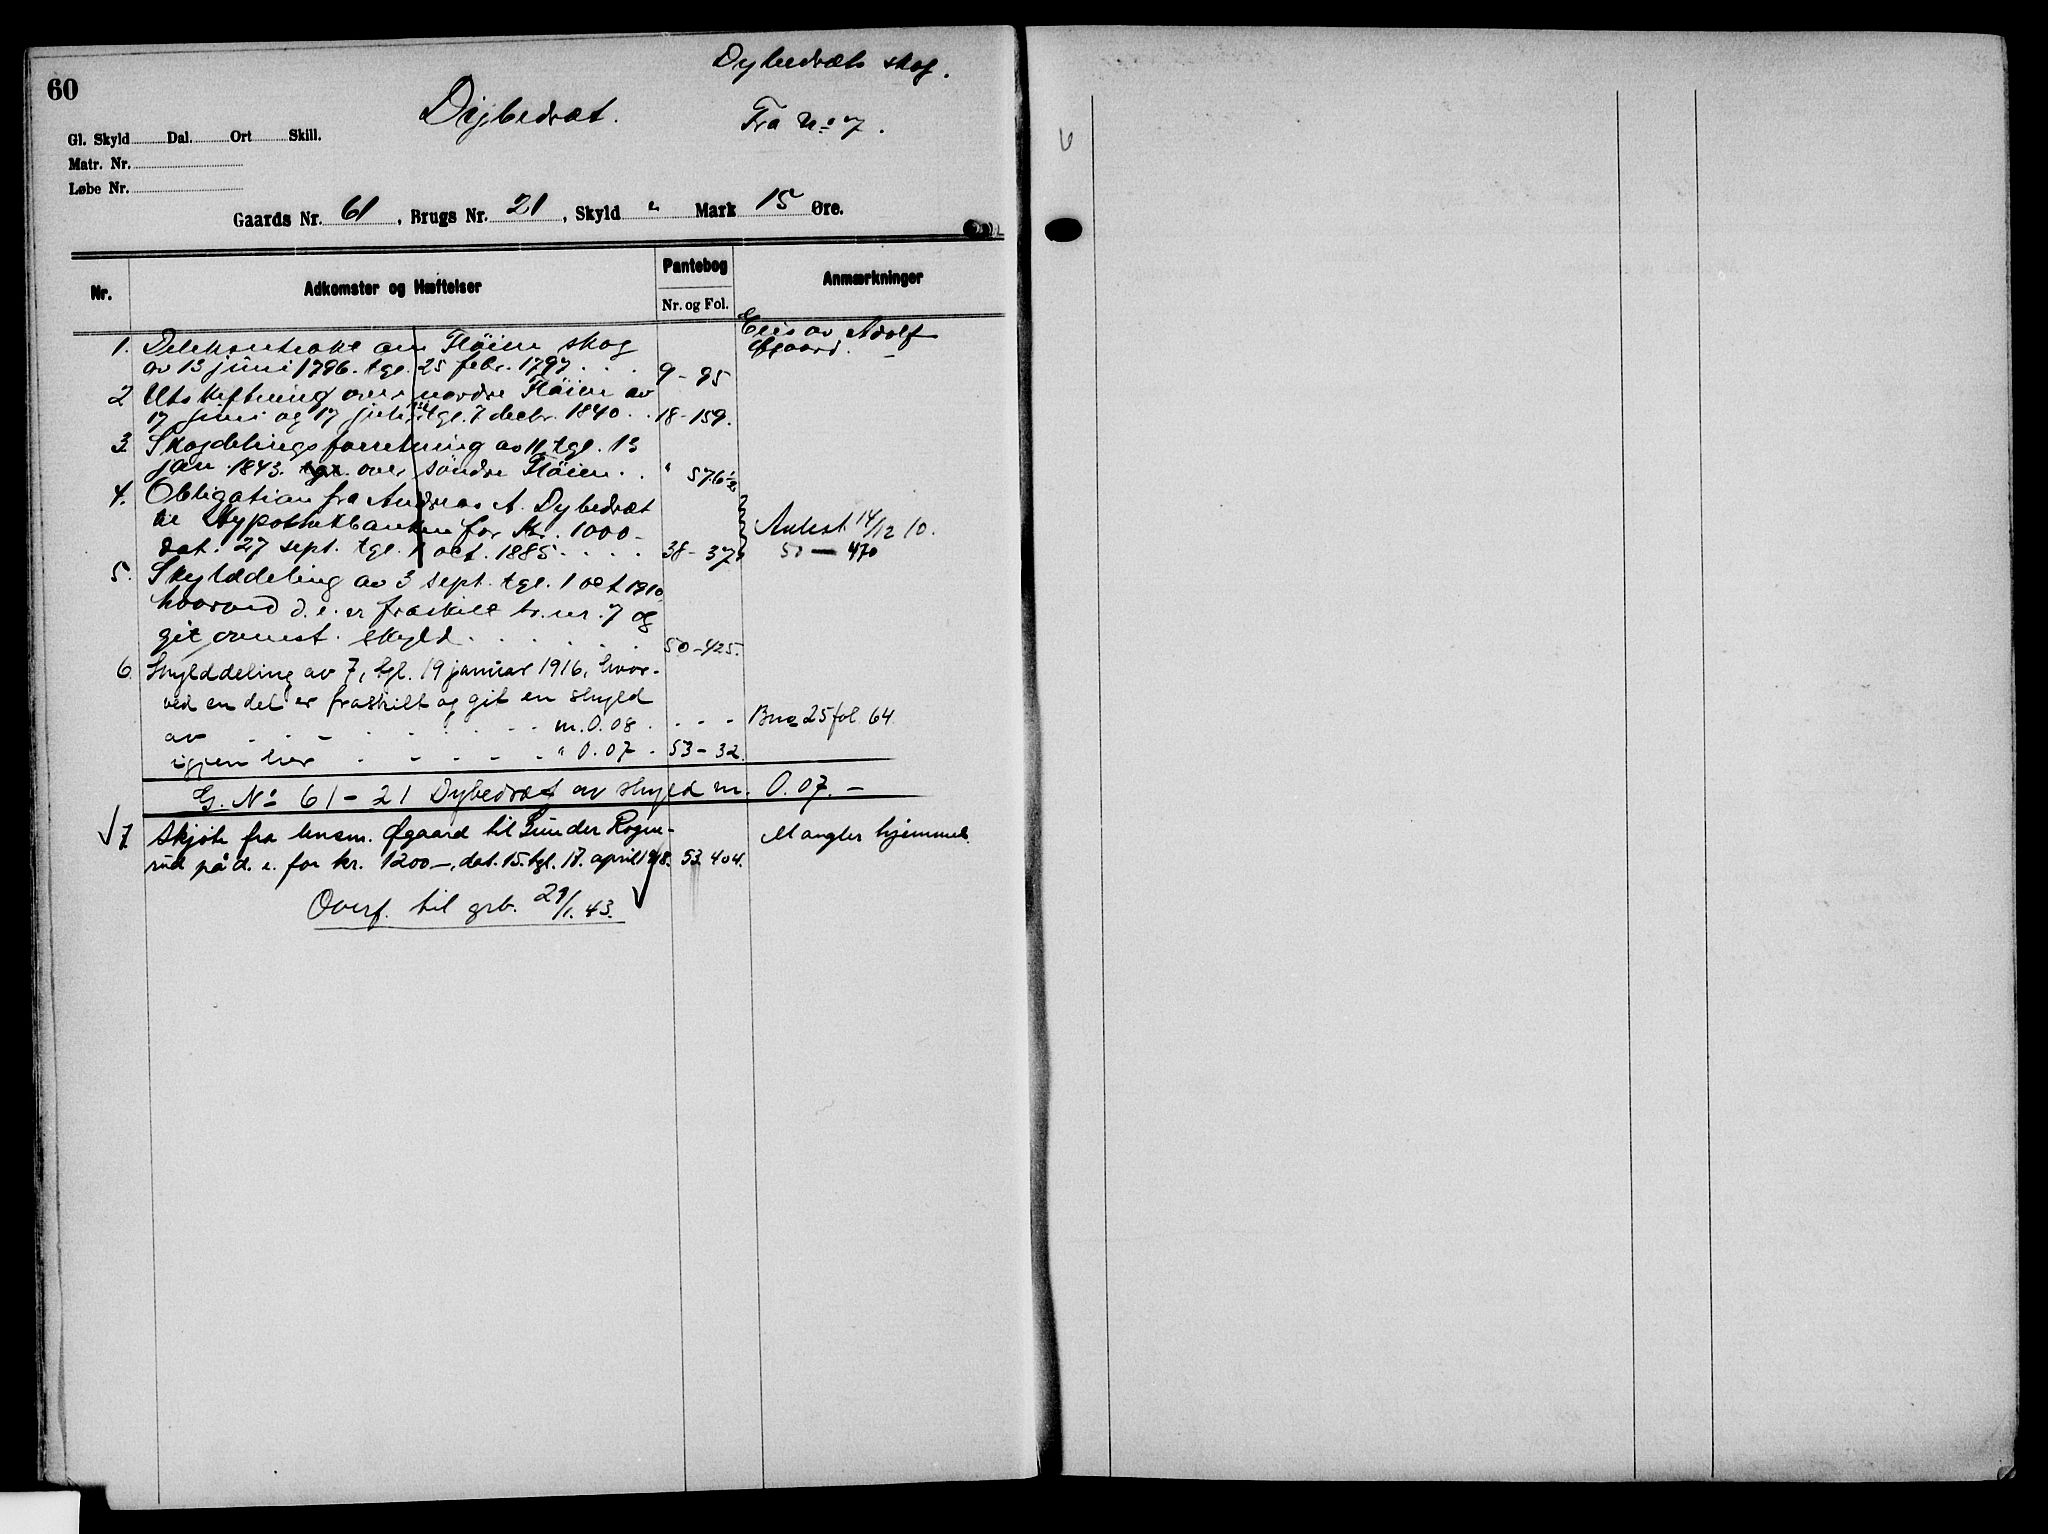 60
Dybedræts skog.
Dybedræt.
Fra No 7.
Gl. Skyld Dal. Ort Skill.
Matr. Nr.
Løbe Nr.
Gaards Nr. 61, Brugs Nr. 21, Skyld " Mark 15 Øre.
Nr. Adkomster og Hæftelser Pantebog Nr. og Fol. Anmærkninger
1. Delekontrakt om Fløien skog Eies av Adolf
av 13 juni 1796. tgl. 25 febr. 1797 . . . 9-95 Øgaard.
2 Utskiftning over nordre Fløien av
17 juni og 17 juli tgl. 7 decbr. 1840 . . 18-159.
3. Skogdelingsforretning av 11 tgl. 13
jan. 1843. tgl. over søndre Fløien . . " 576
4. Obligation fra Andreas A. Dybedræt
til Hypothekbanken for Kr. 1000- Avlest 14/12 10.
dat. 27 sept. tgl. 1 oct. 1885 . . . . 38-37 50-470
5. Skylddeling av 3 sept. tgl. 1 oct 1910
hvorved d. e. er fraskilt br. nr. 7 og
git ovenst. skyld . . . . . 50-425.
6. Skylddeling av 7, tgl. 19 januar 1916, hvor-
ved en del er fraskilt og git en skyld
av . . . . . . . . m. 0.08 . - - - Bno 25 fol. 64
igjen her . - - - - " 0.07 - 53-32.
G. No 61-21 Dybedræt av skyld m. 0.07.-
7 Skjøte fra lensm. Øgaard til Gunder Rogne- Mangler hjemmel.
rud på d. e. for kr. 1200-, dat. 15. tgl. 17. april 1918. 53. 404.
Overf. til grb. 29/1. 43.